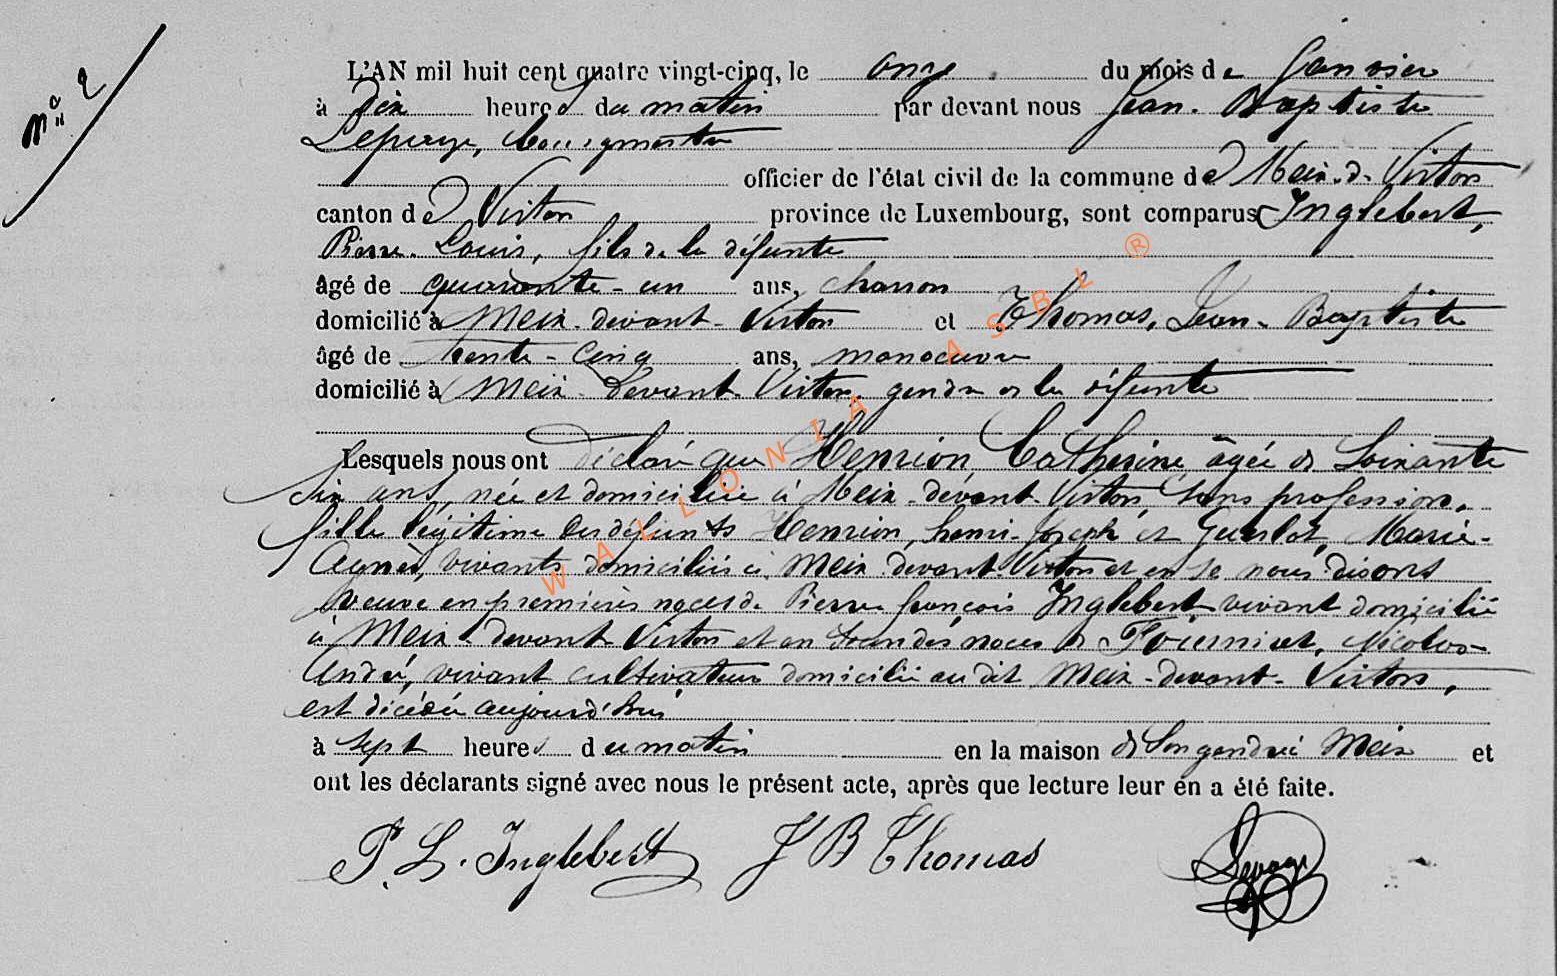 nº 2
L'AN mil huit cent quatre vingt-cinq, le onze du mois de Janvier
à Dix heures du matin par devant nous Jean-Baptiste
Lepage, bourgmestre
officier de l'état civil de la commune de Meix-d-Virton
canton de Virton province de Luxembourg, sont comparus Inglebert,
Pierre-Louis, fils de la défunte
âgé de quarante-un ans, charron
domicilié à Meix-devant-Virton et Thomas, Jean-Baptiste
âgé de trente-cinq ans, manoeuvre
domicilié à Meix-Devant-Virton, gendre de la défunte
Lesquels nous ont déclaré que Henrion, Catherine, âgée de Soixante
Six ans, née et domiciliée à Meix-devant-Virton, sans profession,
fille légitime des défunts Henrion, henri-Joseph et Marie-
Agnès, vivants domiciliés à Meix-devant-Virton et nous disons
veuve en premières noces de Pierre françois Inglebert vivant domicilié
à Meix-devant-Virton et en secondes noces de Fourniret, Nicolas
André, vivant cultivateur domicilié au dit Meix-devant-Virton,
est décédée aujourd'hui
à sept heures du matin en la maison de Son gendre à Meix et
ont les déclarants signé avec nous le présent acte, après que lecture leur en a été faite.
P. L. Inglebert J B Thomas Lepage
WALLONIA ASBL ®